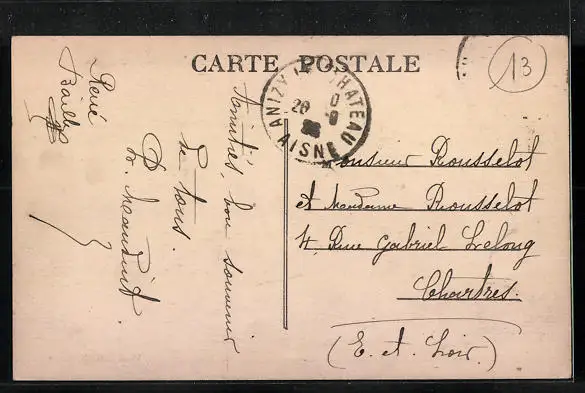 CARTE POSTALE
13
ANIZY LE CHATEAU
20
AISNE
Amitiés, bon souvenir
de tous.
René
Monsieur Rousselot
et Madame Rousselot
4, Rue Gabriel Lelong
Chartres.
(E. et. Loir.)